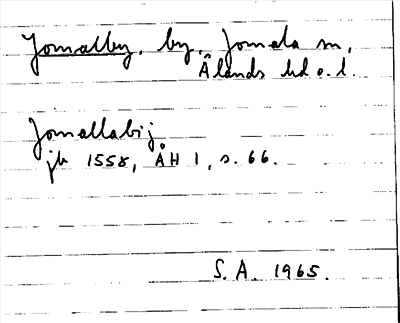 Jomalby, by, Jomala sn,
Ålands hd o. l.
Jomallabij
jb 1558, ÅH 1, s. 66.
S. A. 1965.